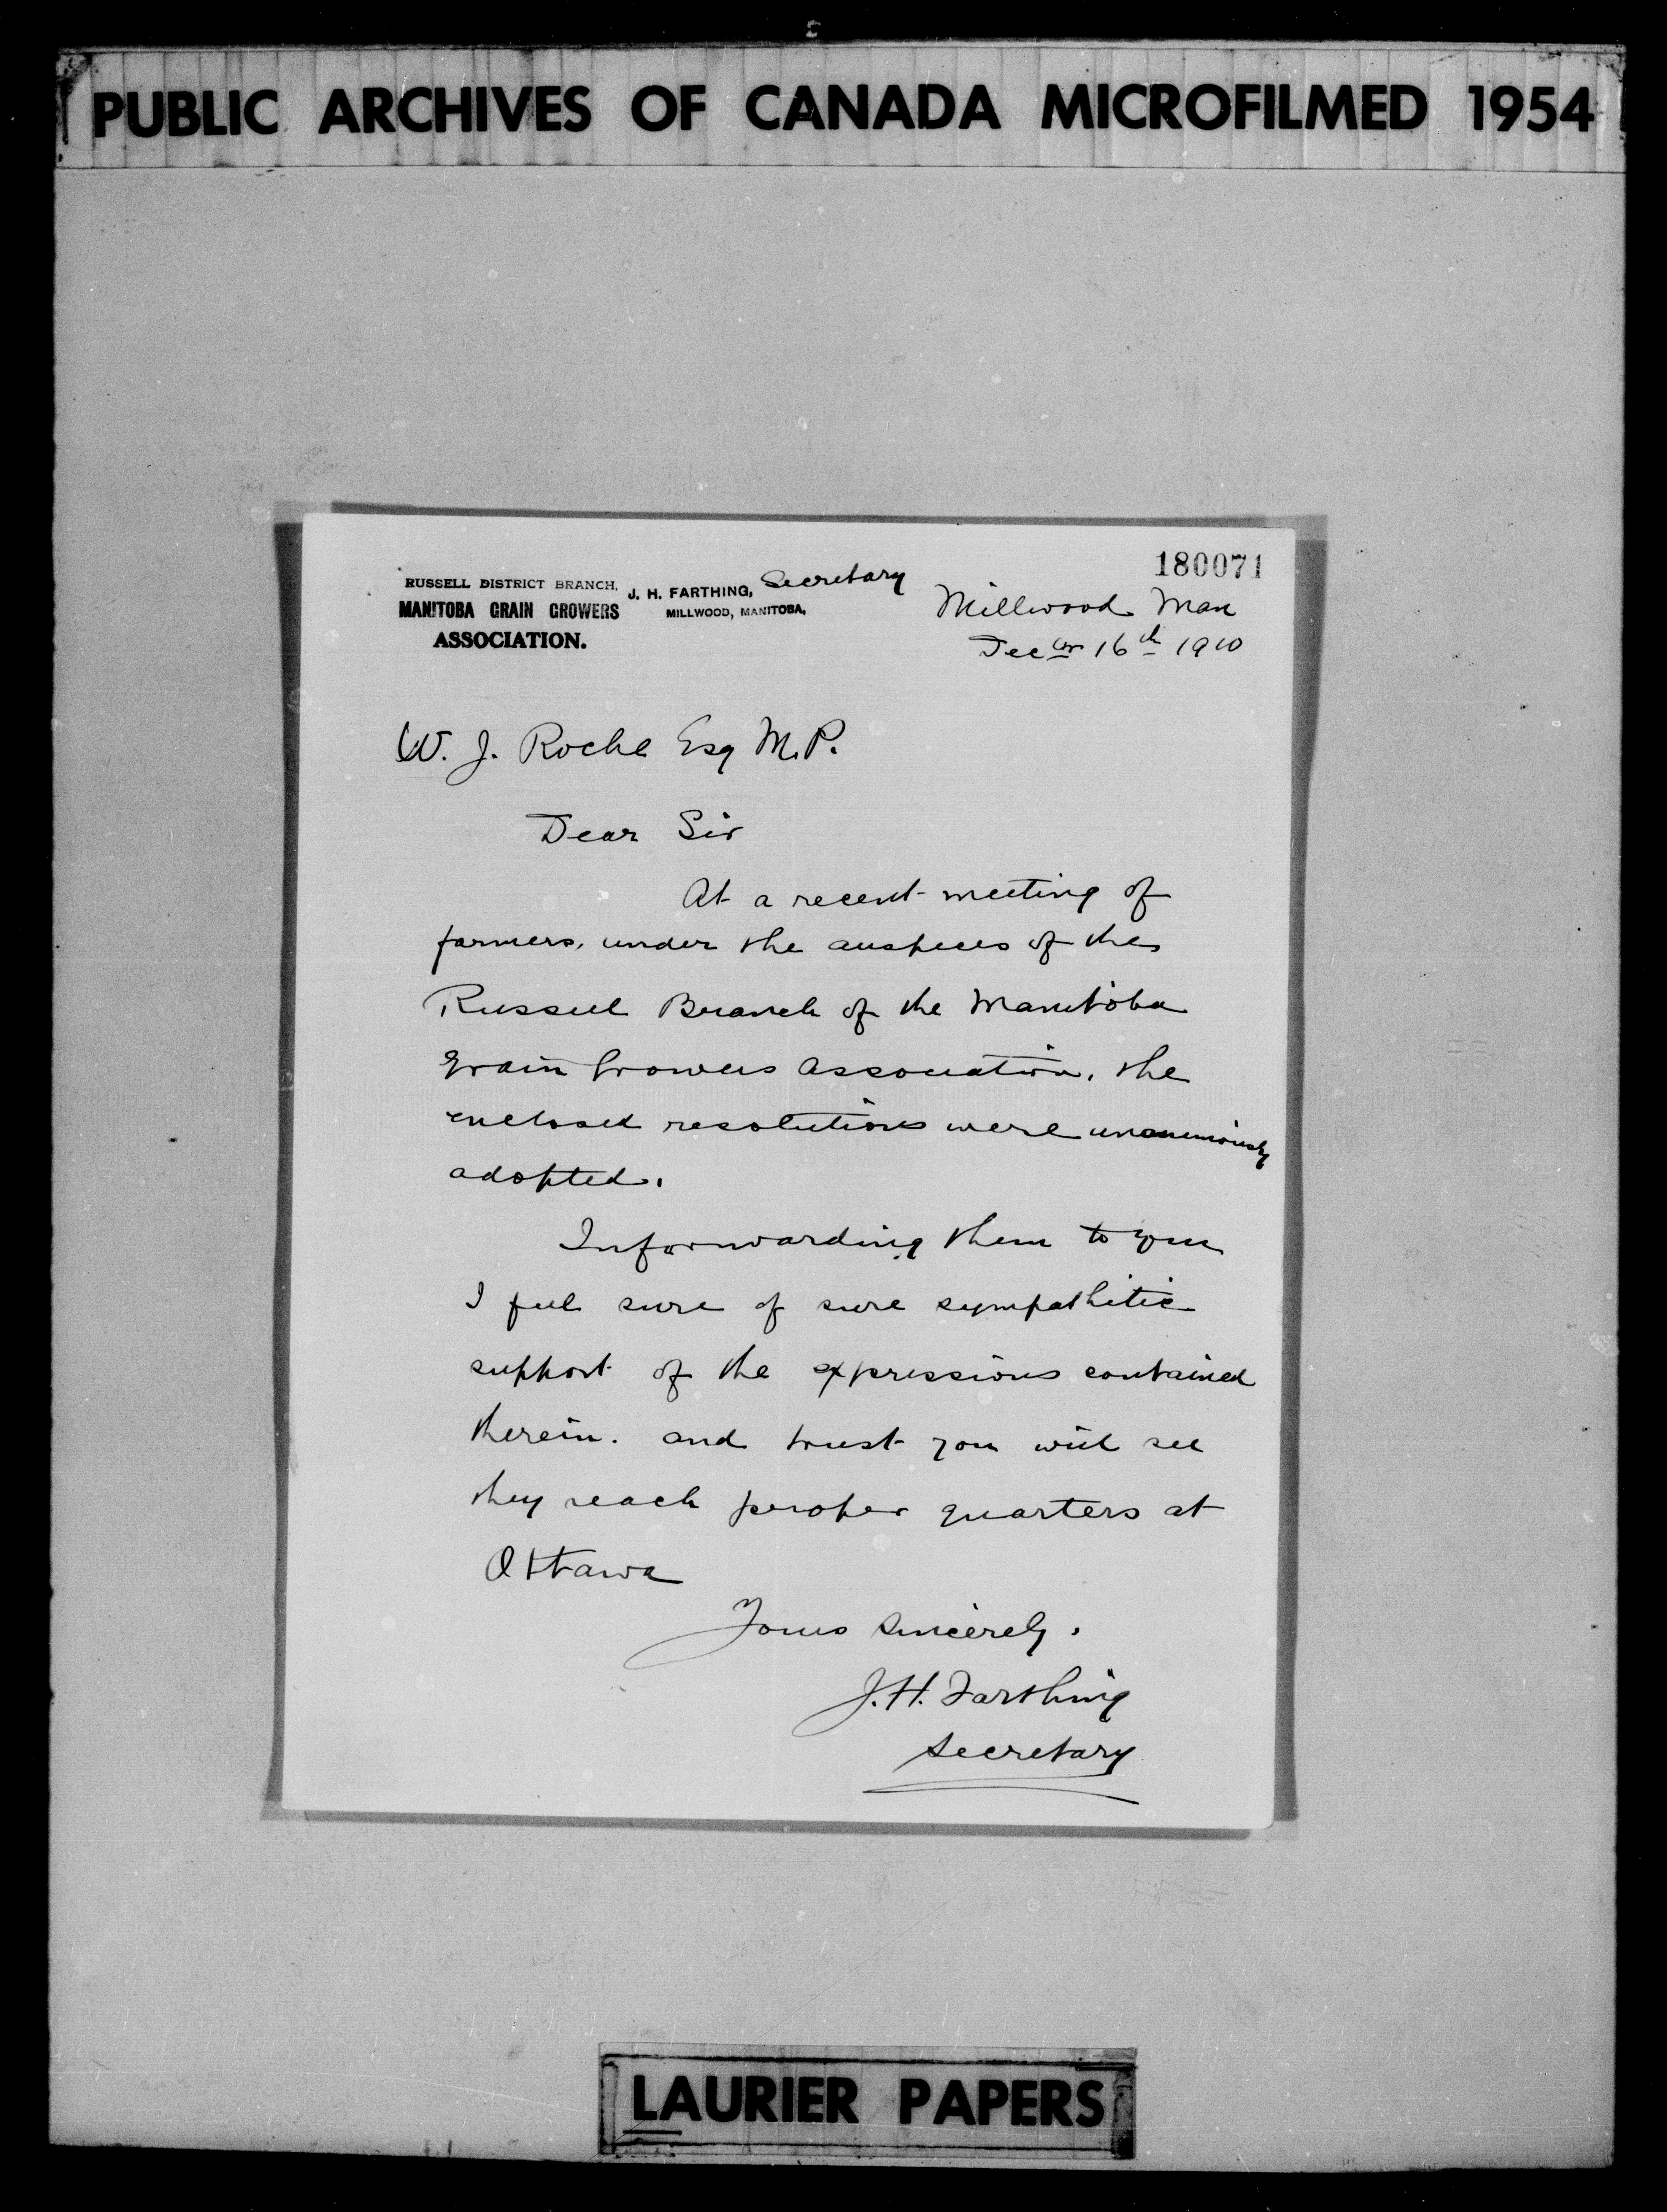 PUBLIC ARCHIVES OF CANADA MICROFILMED 1954
180071
RUSSELL DISTRICT BRANCH,
MANITOBA GRAIN GROWERS
ASSOCIATION.
J. H. FARTHING, Secretary
MILLWOOD, MANITOBA,
Millwood Man
Decber 16th 1910
W. J. Roche Esq M.P.
Dear Sir
At a recent meeting of
farmers, under the auspices of the
Russell Branch of the Manitoba
Grain Growers Association, the
enclosed resolutions were unanimously
adopted.
In forwarding them to you
I feel sure of sure sympathetic
support of the expressions contained
therein. and trust you will see
they reach proper quarters at
Ottawa
Yours Sincerely.
J. H. Farthing
Secretary
LAURIER PAPERS